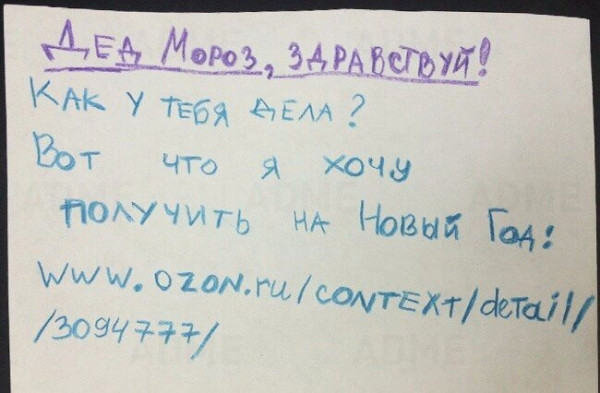 ДЕД МОРОЗ, ЗДРАВСТВУЙ!
КАК У ТЕБЯ ДЕЛА?
ВОТ ЧТО Я ХОЧУ
ПОЛУЧИТЬ НА НОВЫЙ ГОД:
WWW.OZON.ru/CONTEXT/deTail/
/3094777/